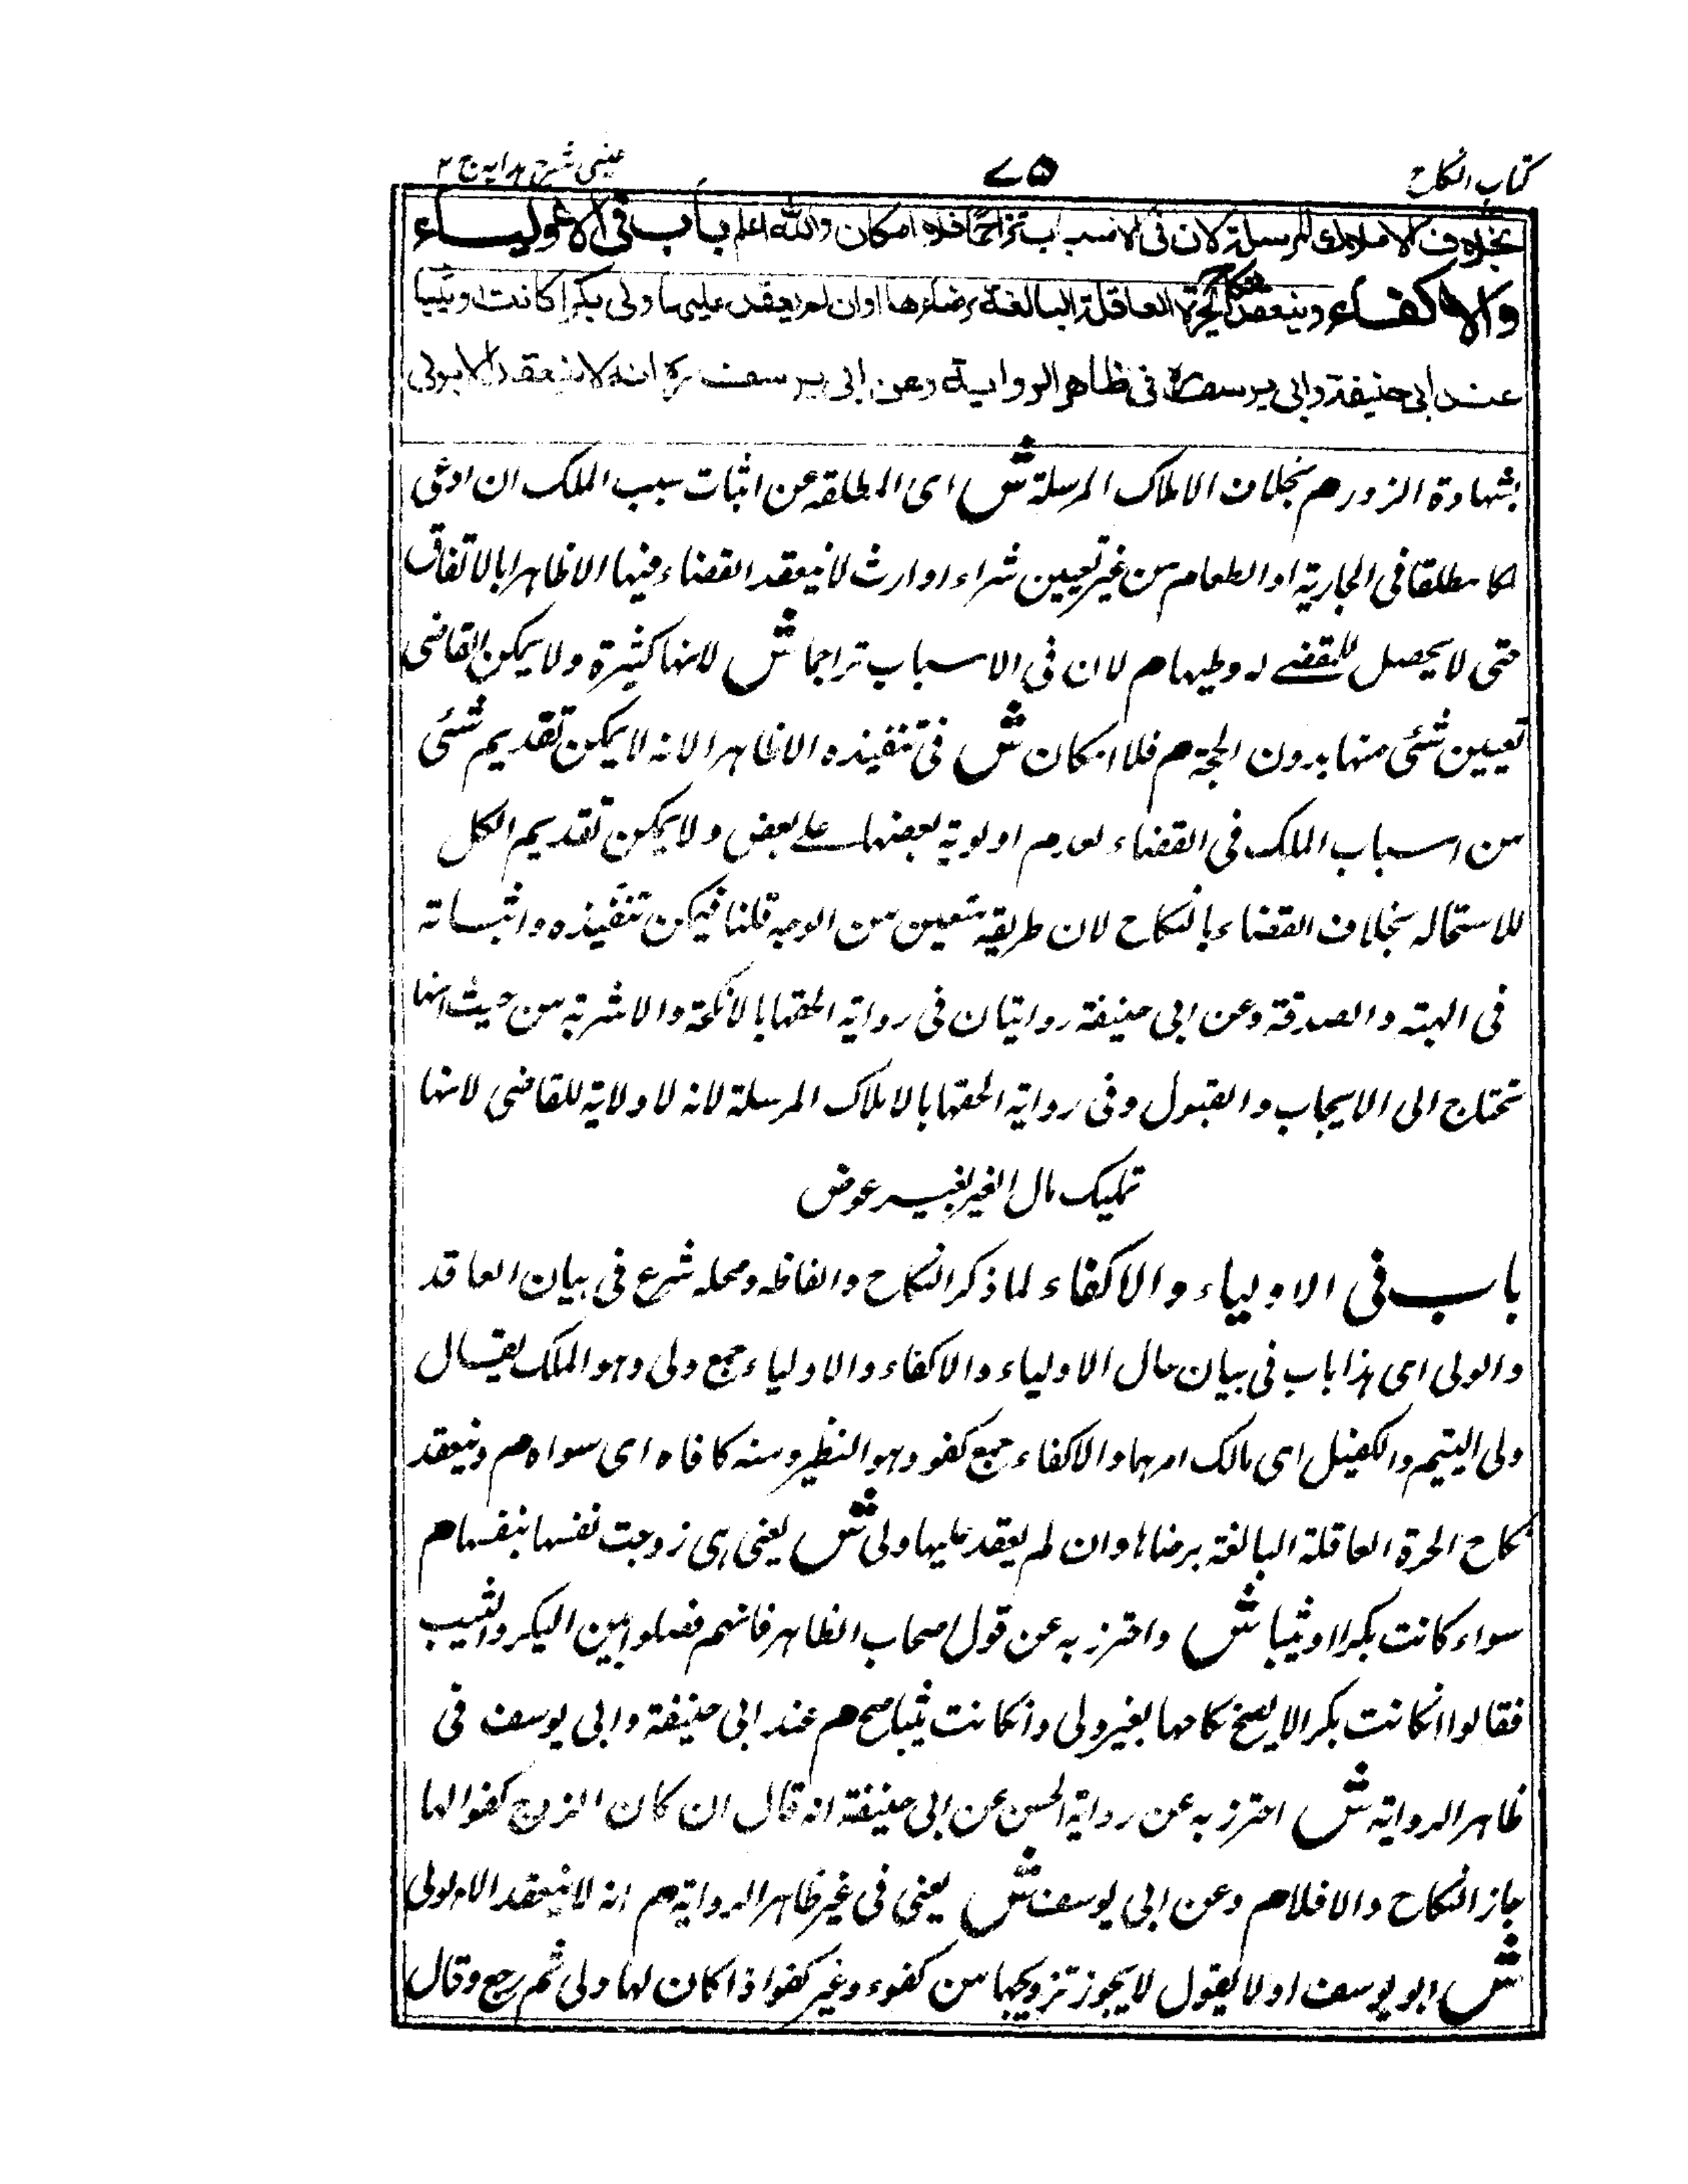 كتاب النكاح
۷۵
عينى شرح هدايه ج ۲
بخلاف الاملاك المرسلة لان فى الاسباب تزاحمًا فلا امكان والله اعلم باب فى الاولياء
والاكفاء وينعقد نكاح الحرة العاقلة البالغة برضاءها وان لم يعقد عليها ولى بكرا كانت او ثيبا
عند ابى حنيفة وابى يوسف رح فى ظاهر الرواية وعن ابى يوسف رح انه لا ينعقد الا بولى
بشهادة الزور م بخلاف الاملاك المرسلة ش اى المطلقه عن اثبات سبب الملك ان ادعى
ملكا مطلقا فى الجارية او الطعام من غير تعيين شراء او ارث لا ينعقد القضاء فيها الا ظاهرا بالاتفاق
حتى لا يحصل للمقضے له وطيها م لان فى الاسباب تزاحما ش لانها كثيرة ولا يمكن القاضى
تعيين شئى منها بدون الحجة م فلا امكان ش فى تنفيذه الا ظاهرا لانه لا يمكن تقديم شئى
من اسباب الملك فى القضاء لعدم اولوية بعضها علے بعض ولا يمكن تقديم الكل
للاستحاله بخلاف القضاء بالنكاح لان طريقه متعين من الوجه قلنا فيمكن تنفيذه واثباته
فى الهبة والصدقة وعن ابى حنيفة روايتان فى رواية الحقها بالانكحة والاشربة من حيث انها
تحتاج الى الايجاب والقبول وفى رواية الحقها بالاملاك المرسلة لانه لا ولاية للقاضى لانها
تمليك مال الغير بغير عوض
باب فى الاولياء والاكفاء لما ذكر النكاح والفاظه ومحله شرع فى بيان العاقد
والولى اى هذا باب فى بيان حال الاولياء والاكفاء والاولياء جمع ولى وهو الملك يقال
ولى اليتيم والكفيل اى مالك امرهما والاكفاء جمع كفو وهو النظير ومنه كافاه اى سواه م وينعقد
نكاح الحرة العاقلة البالغة برضاها وان لم يعقد عليها ولى ش يعنى هى زوجت نفسها بنفسها م
سواء كانت بكرا او ثيبا ش واحترز به عن قول اصحاب الظاهر فانهم فصلوا بين البكر والثيب
فقالوا ان كانت بكرا لا يصح نكاحها بغير ولى وانكانت ثيبا صح م عند ابى حنيفة وابى يوسف فى
ظاهر الرواية ش احترز به عن رواية الحسن عن ابى حنيفة انه قال ان كان الزوج كفوا لها
جاز النكاح والا فلا م وعن ابى يوسف ش يعنى فى غير ظاهر الرواية م انه لا ينعقد الا بولى
ش ابو يوسف اولا يقول لا يجوز تزويجها من كفوء وغير كفوا ذا كان لها ولى ثم رجع وقال